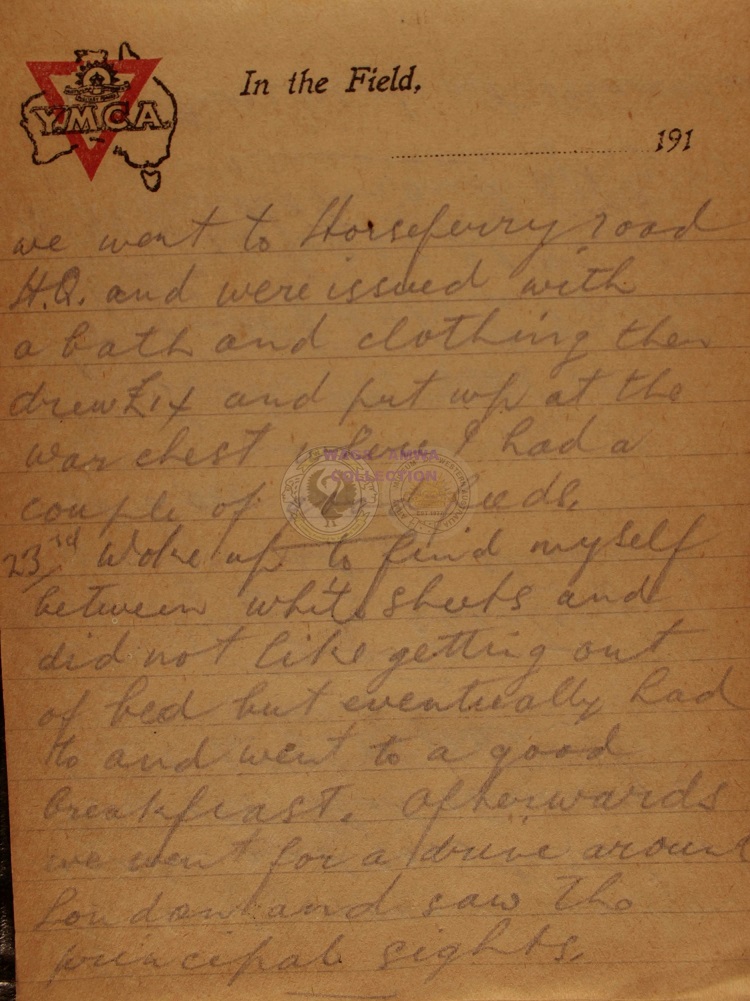 YMCA
In the Field,
191
we went to Horseferry road
H.Q. and were issued with
a bath and clothing then
drew and put up at the
war chest where I had a
couple of good feeds.
23rd Woke up to find myself
between white sheets and
did not like getting out
of bed but eventually had
to and went to a good
breakfast. Afterwards
we went for a drive around
London and saw the
principal sights.
AMWA
COLLECTION